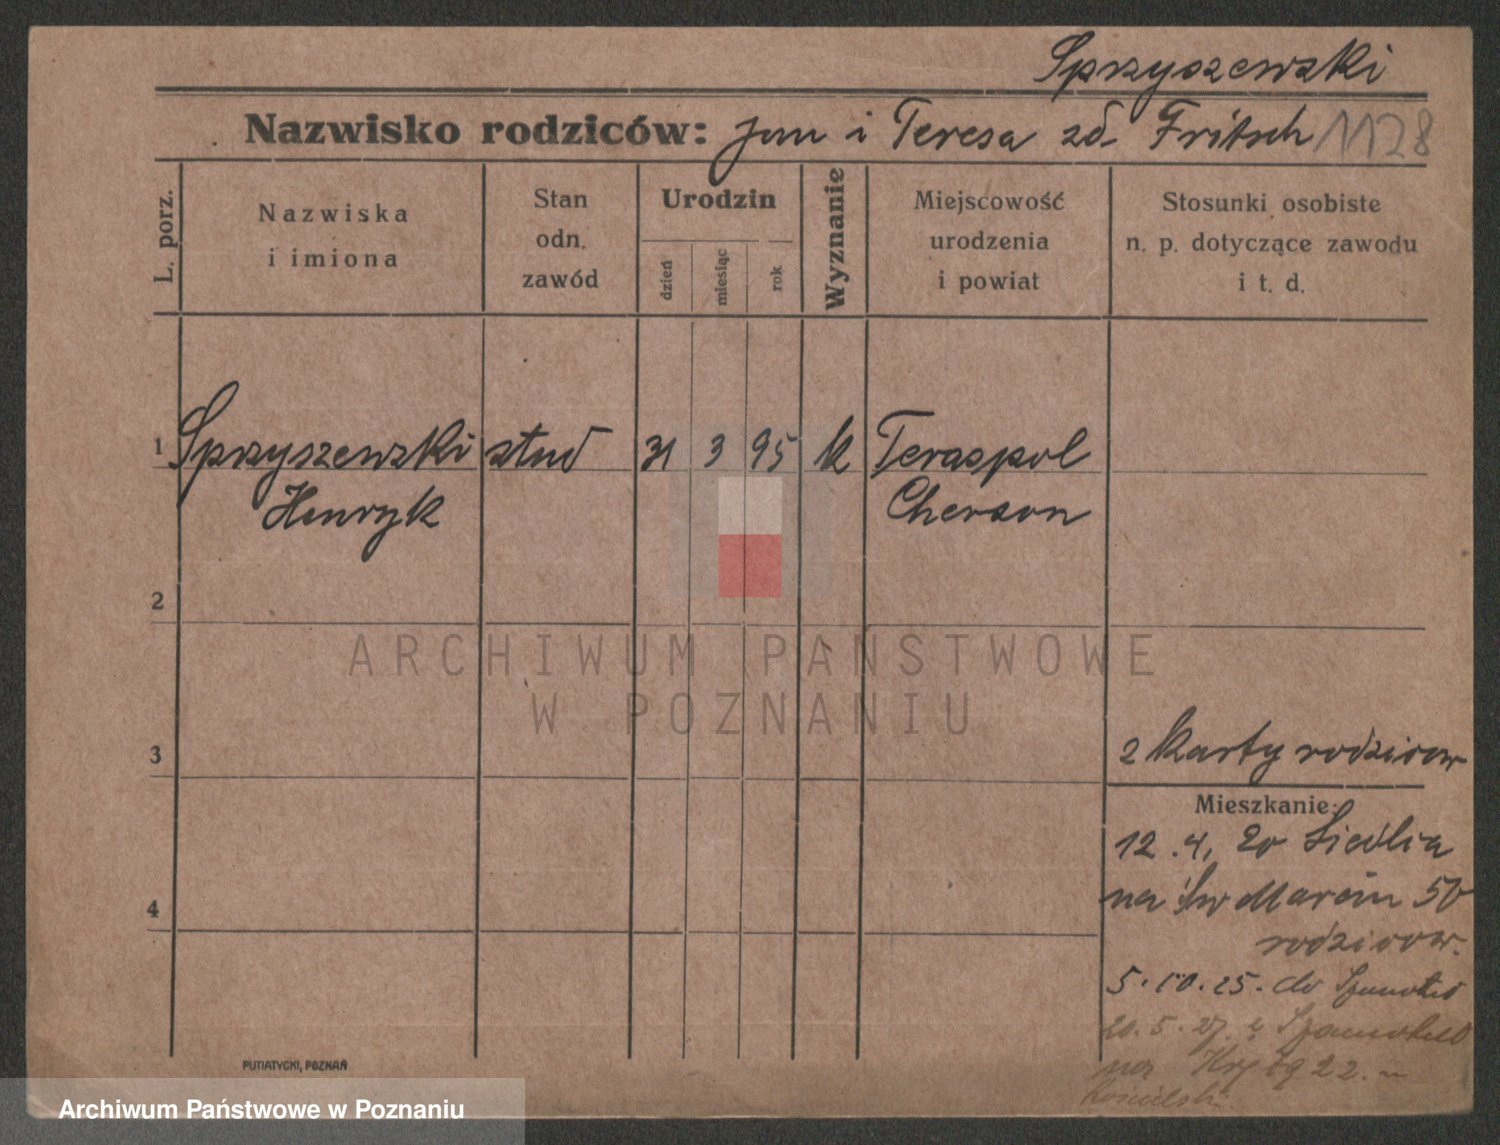 Spryszewski
Nazwisko rodziców: Jan i Teresa zd. Fritsch 1128
L. porz.
Nazwiska
i imiona
Stan
odn.
zawód
Urodzin
dzień
miesiąc
rok
Wyznanie
Miejscowość
urodzenia
i powiat
Stosunki osobiste
n. p. dotyczące zawodu
i t. d.
1 Spryszewski stud 31 3 95 k Teraspol
Henryk Cherson
2
3
2 karty rodziców
Mieszkanie:
12.4. 20 Siedlia
na Św Marcin 50
rodziców.
4
5.10.25. do Szamotuł
20.5.27. z Szamotuł
na 22.
PUTIATYCKI, POZNAŃ
ARCHIWUM PAŃSTWOWE
W POZNANIU
Archiwum Państwowe w Poznaniu